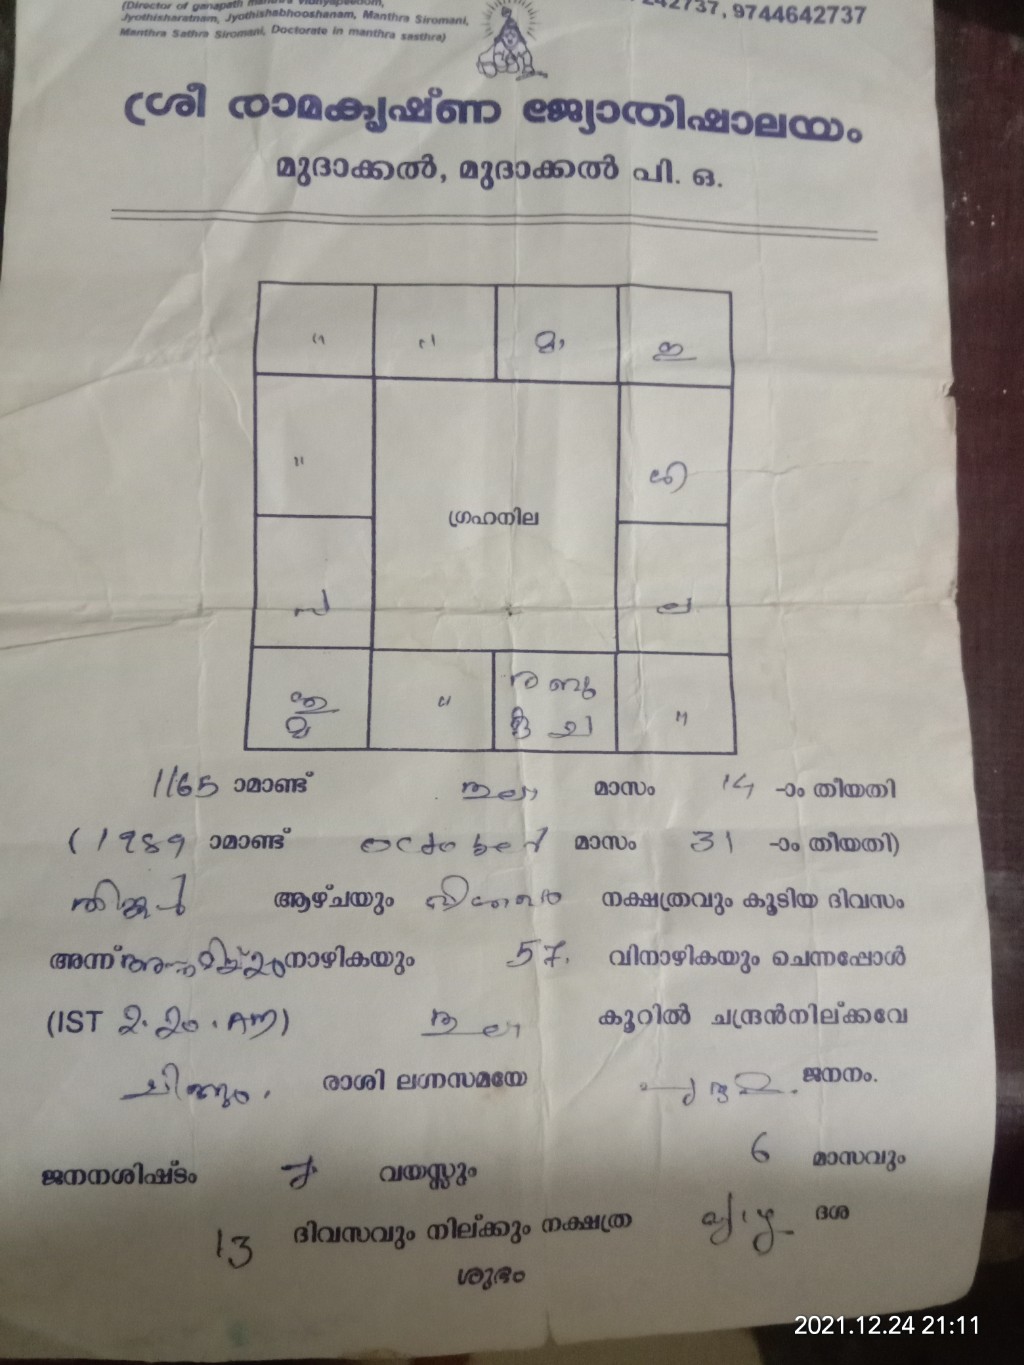 (Director of ganapath manthra vidhyapeedom,
Jyothisharatnam, Jyothishabhooshanam, Manthra Siromani,
Manthra Sathra Siromani, Doctorate in manthra sasthra)
242737, 9744642737
ശ്രീ രാമകൃഷ്ണ ജ്യോതിഷാലയം
മുദാക്കൽ, മുദാക്കൽ പി. ഒ.
" " മാ
" ശി
ഗ്രഹനില
ല
" ര ബു "
1165 ാമാണ്ട് തുലാ മാസം 14 -ാം തീയതി
(1989 ാമാണ്ട് october മാസം 31 -ാം തീയതി)
തിങ്കൾ ആഴ്ചയും വിശാഖം നക്ഷത്രവും കൂടിയ ദിവസം
അന്ന് നാഴികയും 57. വിനാഴികയും ചെന്നപ്പോൾ
(IST 2.20.AM) തുലാ കൂറിൽ ചന്ദ്രൻനില്ക്കവേ
ചിങ്ങം. രാശി ലഗ്നസമയേ ജനനം.
ജനനശിഷ്ടം 7 വയസ്സും 6 മാസവും
13 ദിവസവും നില്ക്കും നക്ഷത്ര വ്യാഴ ദശ
ശുഭം
2021.12.24 21:11